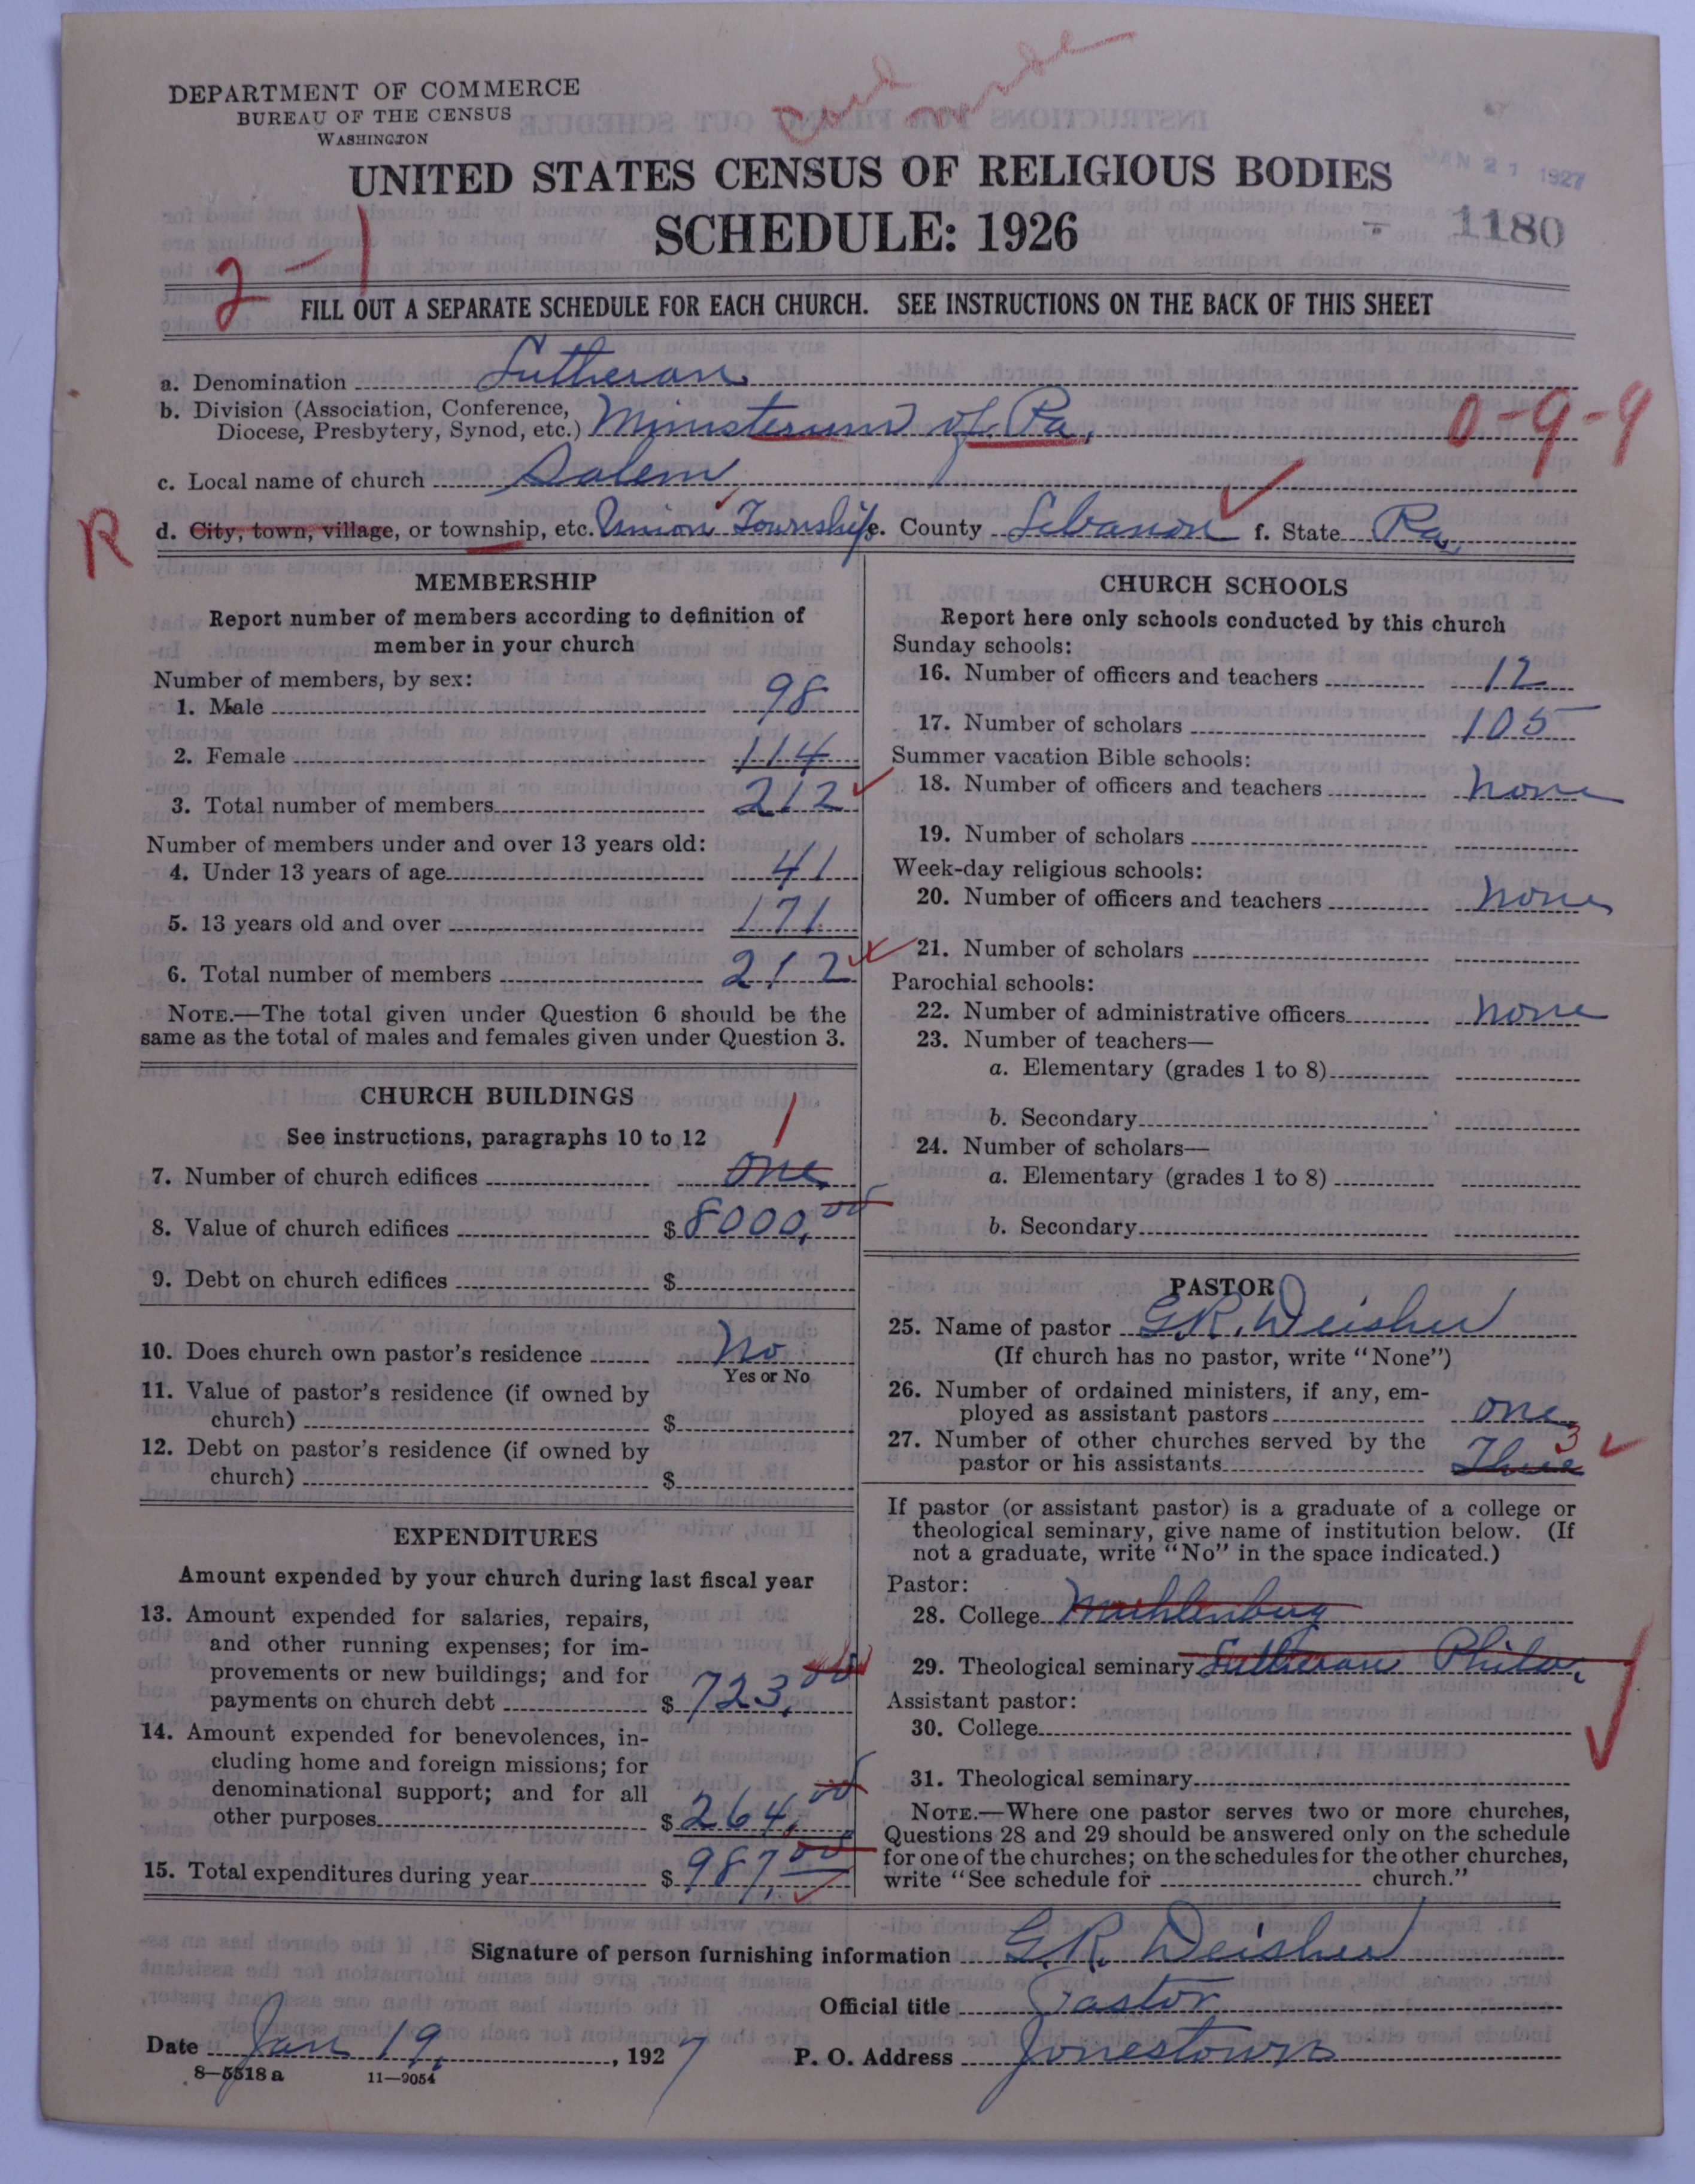 Card made
DEPARTMENT OF COMMERCE
BUREAU OF THE CENSUS
WASHINGTON
UNITED STATES CENSUS OF RELIGIOUS BODIES
JAN 21 1927
SCHEDULE: 1926
1180
2-1
FILL OUT A SEPARATE SCHEDULE FOR EACH CHURCH. SEE INSTRUCTIONS ON THE BACK OF THIS SHEET
a. Denomination Lutheran
b. Division (Association, Conference,
Diocese, Presbytery, Synod, etc.) Ministerium of Pa. 0-9-4
c. Local name of church Salem
R d. City, town, village, or township, etc. Union Township e. County Lebanon f. State Pa.
MEMBERSHIP
Report number of members according to definition of
member in your church
Number of members, by sex:
1. Male 98
2. Female 114
3. Total number of members 212
Number of members under and over 13 years old:
4. Under 13 years of age 41
5. 13 years old and over 171
6. Total number of members 212
NOTE.—The total given under Question 6 should be the
same as the total of males and females given under Question 3.
CHURCH BUILDINGS
See instructions, paragraphs 10 to 12
1
7. Number of church edifices one
8. Value of church edifices $ 8000,00
9. Debt on church edifices $
10. Does church own pastor's residence No
Yes or No
11. Value of pastor's residence (if owned by
church) $
12. Debt on pastor's residence (if owned by
church) $
EXPENDITURES
Amount expended by your church during last fiscal year
13. Amount expended for salaries, repairs,
and other running expenses; for im-
provements or new buildings; and for
payments on church debt $ 723.00
14. Amount expended for benevolences, in-
cluding home and foreign missions; for
denominational support; and for all
other purposes $ 264,00
15. Total expenditures during year $ 987,00
CHURCH SCHOOLS
Report here only schools conducted by this church
Sunday schools:
16. Number of officers and teachers 12
17. Number of scholars 105
Summer vacation Bible schools:
18. Number of officers and teachers none
19. Number of scholars
Week-day religious schools:
20. Number of officers and teachers none
21. Number of scholars
Parochial schools:
22. Number of administrative officers none
23. Number of teachers—
a. Elementary (grades 1 to 8)
b. Secondary
24. Number of scholars—
a. Elementary (grades 1 to 8)
b. Secondary
PASTOR
25. Name of pastor G.R. Deisher
(If church has no pastor, write "None")
26. Number of ordained ministers, if any, em-
ployed as assistant pastors one
27. Number of other churches served by the 3
pastor or his assistants Three
If pastor (or assistant pastor) is a graduate of a college or
theological seminary, give name of institution below. (If
not a graduate, write "No" in the space indicated.)
Pastor:
28. College Muhlenburg
29. Theological seminary Lutheran Phila.
Assistant pastor:
30. College
31. Theological seminary
NOTE.—Where one pastor serves two or more churches,
Questions 28 and 29 should be answered only on the schedule
for one of the churches; on the schedules for the other churches,
write "See schedule for church."
Signature of person furnishing information G.R. Deisher
Official title Pastor
Date Jan 19, 1927 P. O. Address Jonestown
8-5518 a 11-9054